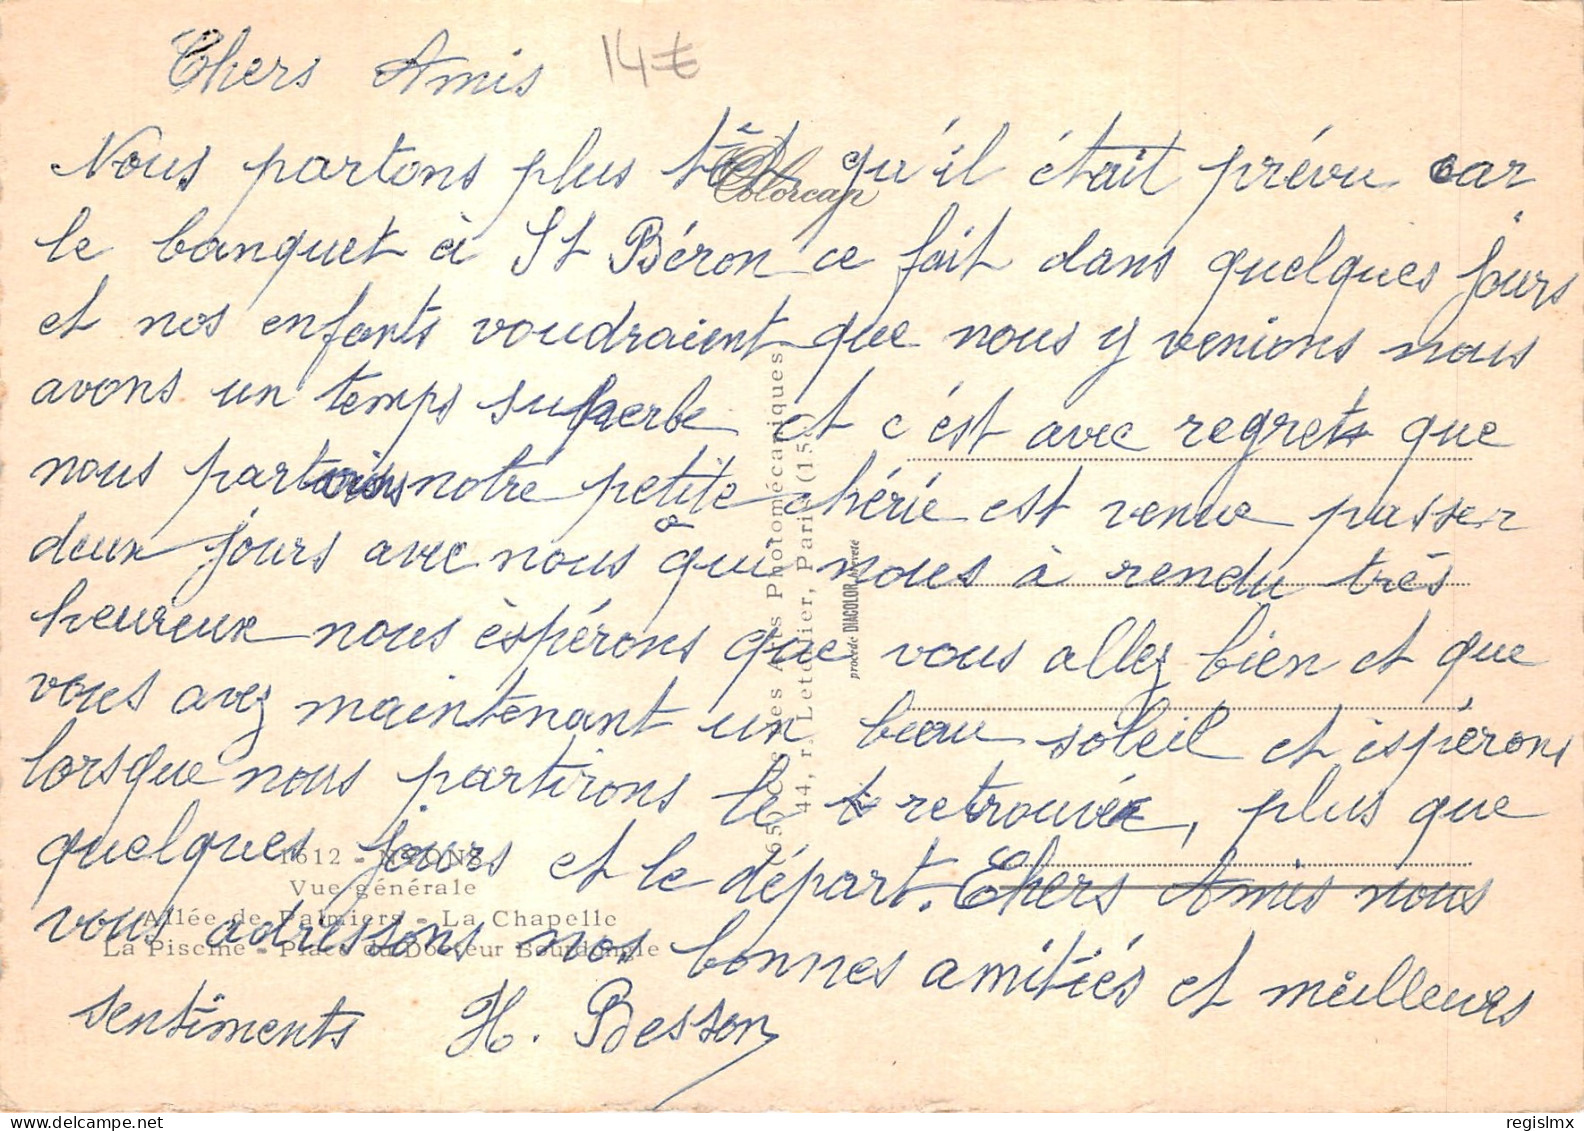 Chers Amis 14€
Nous partons plus tôt qu'il était prévu car
le banquet à St Béron ce fait dans quelques jours
et nos enfants voudraient que nous y venions nous
avons un temps superbe et c'est avec regret que
nous partons notre petite chérie est venue passer
deux jours avec nous que nous à rendu très
heureux nous èspérons que vous allez bien et que
vous avez maintenant un beau soleil et èspérons
lorsque nous partirons le retrouvée, plus que
quelques jours et le départ. Chers Amis nous
vous adressons nos bonnes amitiés et meilleures
sentiments H. Besson
Colorcap
1612 - NYONS
Vue générale
Allée de Palmiers - La Chapelle
La Piscine - Place du Docteur Bourdongle
Les Arts Photomécaniques
44, r. Letellier, Paris (15
procédé DIACOLOR breveté
delcampe.net
regislmx